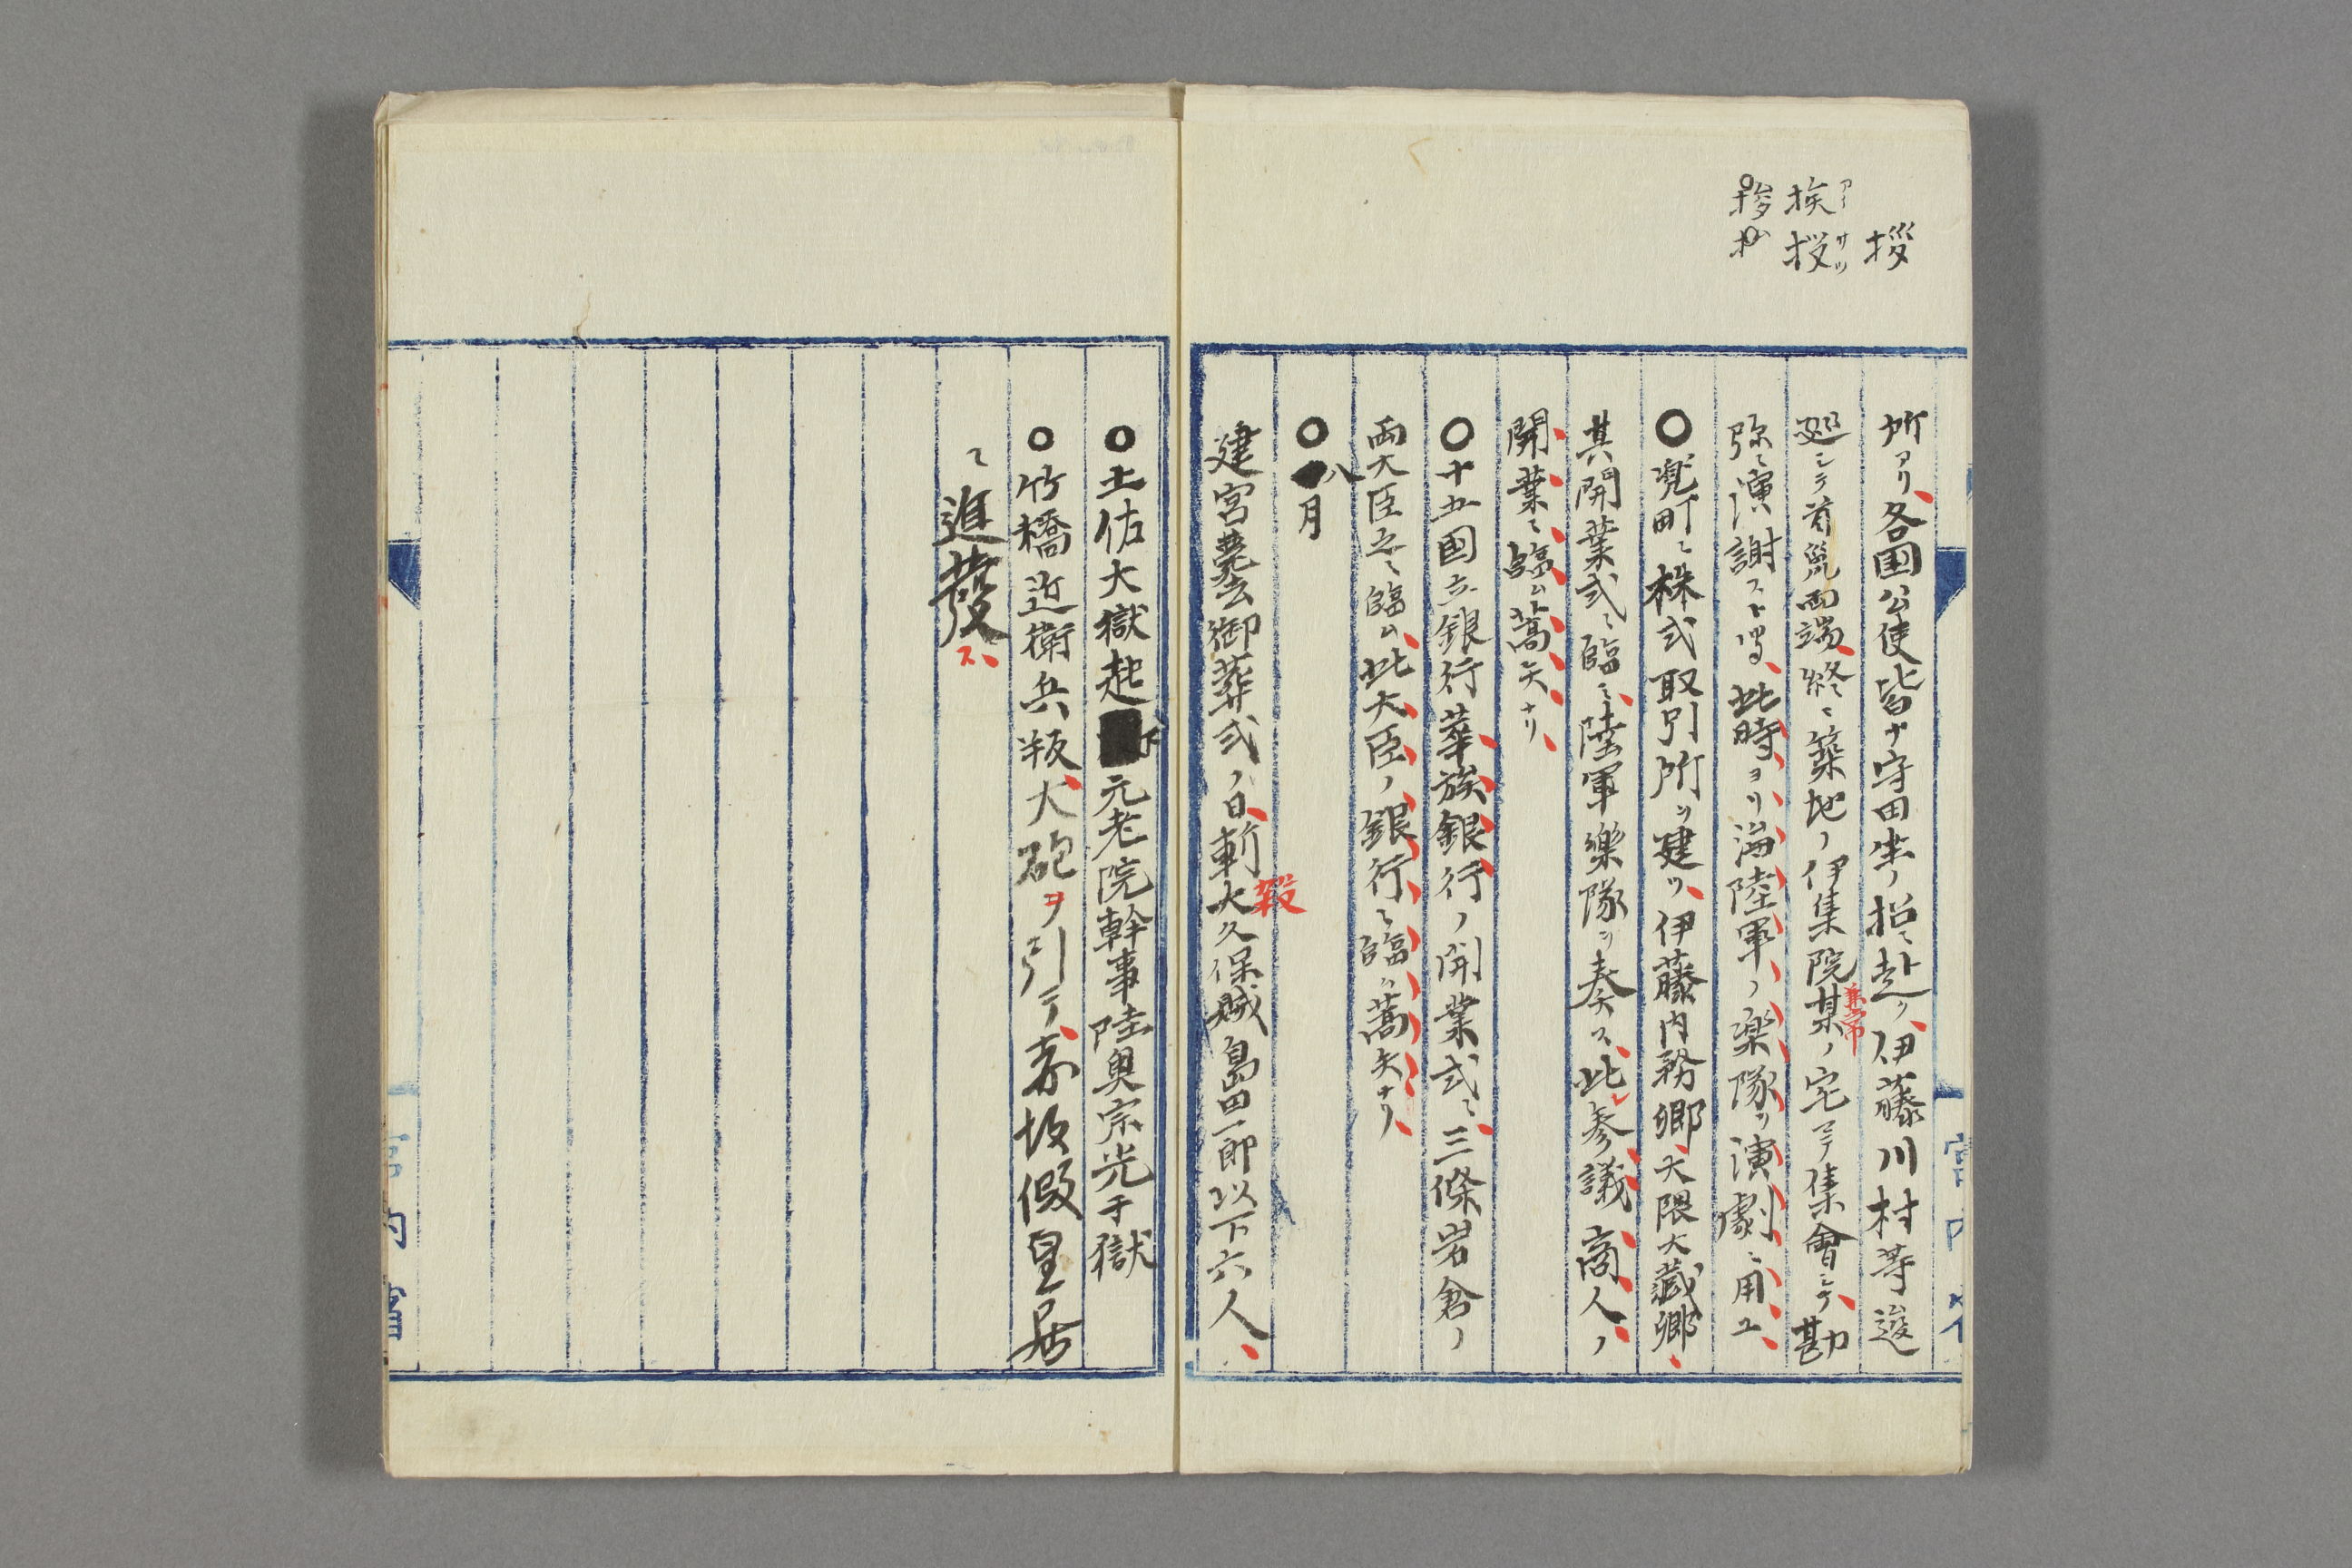 拶
挨拶
アイサツ
所アリ各国公使皆ナ守田坐ノ招ニ赴ク伊藤川村等逡
廵シテ首鼠両端終ニ築地ノ伊集院某ノ宅ニテ集會シテ勘
兼常
弥ニ演謝スト此時ヨリ海陸軍ノ楽隊ヲ演劇ニ用ユ
〇兜町ニ株式取引所ヲ建ツ伊藤内務卿大隈大蔵卿
其開業式ニ臨ミ陸軍樂隊ヲ奏ス此レ参議商人ノ
開業ニ臨ム蒿矢ナリ
〇十五国立銀行華族銀行ノ開業式ニ三條岩倉ノ
両大臣之ニ臨ム此大臣ノ銀行ニ臨ム蒿矢ナリ
〇八月
建宮薨去御葬式ノ日斬大久保賊島田一郎以下六人
殺
〇土佐大獄起下元老院幹事陸奥宗光于獄
〇竹橋近衛兵叛大砲ヲ引テ赤坂假皇居
ニ進發ス
宮内省